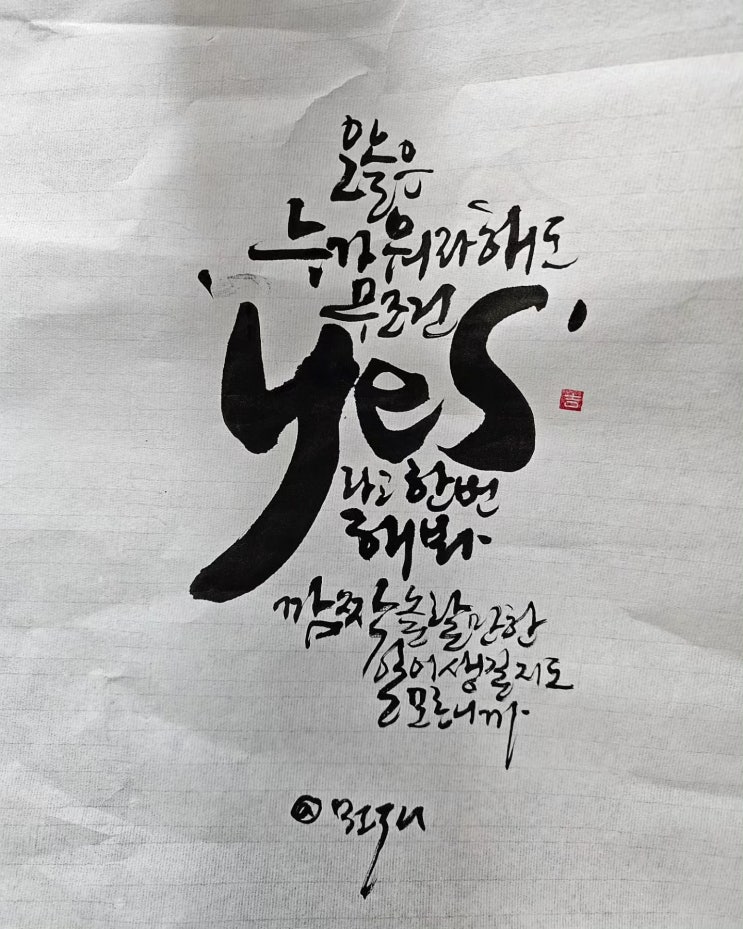 오늘은
누가 뭐라해도
무조건
'yes'
라고 한번
해봐.
깜짝 놀랄만한
일이 생길지도
모르니까.